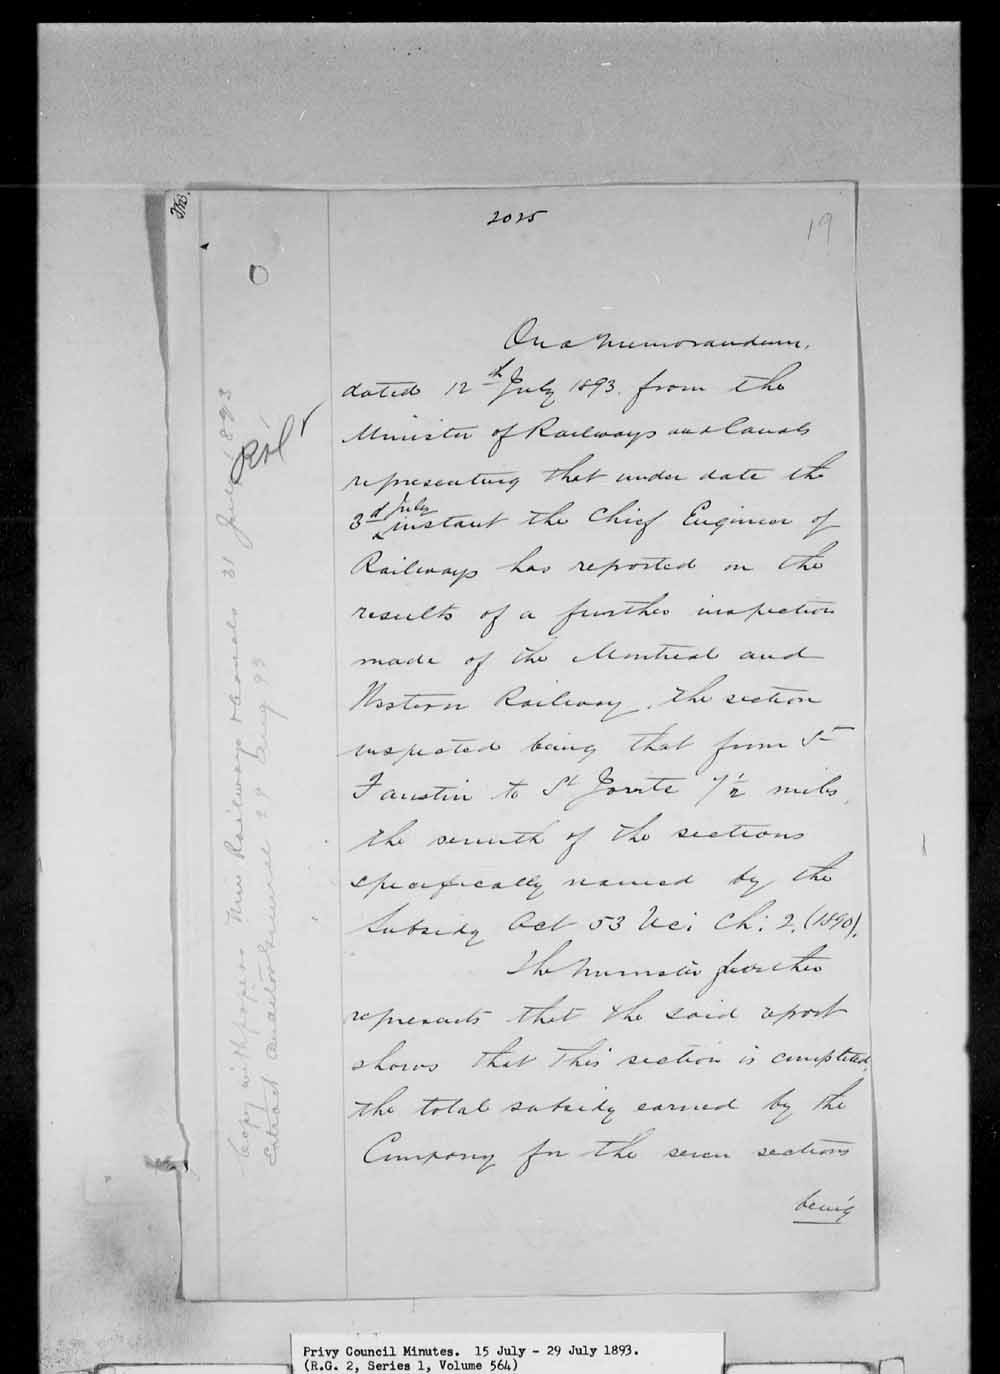 2025
19
On a Memorandum,
dated 12th July 1893. from the
Minister of Railways and Canals
representing that under date the
3rd July instant the Chief Engineer of
Railways has reported on the
results of a further inspection
made of the Montreal and
Western Railway, the section
inspected being that from St
Faustin to St Jovite 7 1/2 miles,
the seventh of the sections
specifically named by the
Subsidy Act 53 Vic: Ch: 2. (1890).
The Minister further
represents that the said report
shows that this section is completed,
the total subsidy earned by the
Company for the seven sections
being
Copy with papers Min Railways & Canals 31 July 1893
Extract Auditor General 29 Aug 93
Privy Council Minutes. 15 July - 29 July 1893.
(R.G. 2, Series 1, Volume 564)